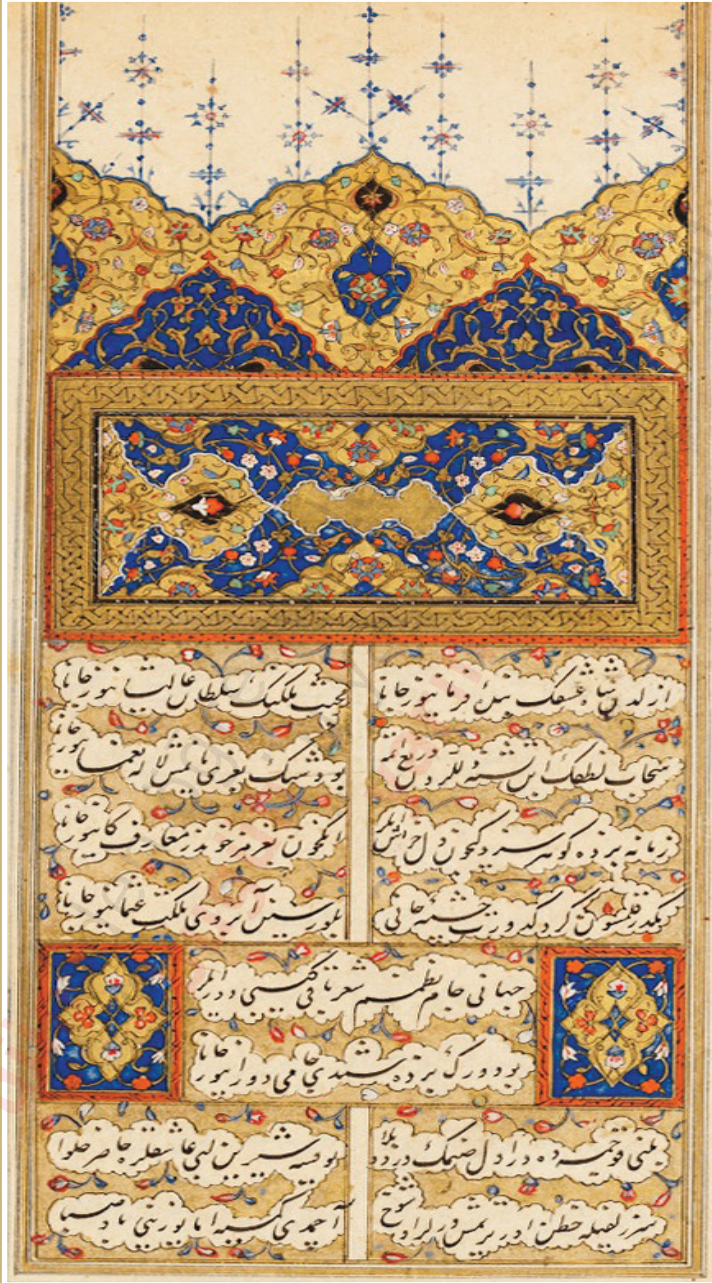 ازلدن شاه عشقك بنده فرمانيوز جانا محبت ملكنك سلطان عاليشانيوز جانا
سحاب لطفك آبن تشنه دللردن دريغ ايتمه بو دشتك بغرى يانمش لاله نعمانيوز جانا
زمانه بزده كوهر سزديكيچون دلخراش ايلر انكچون بغرمز خوندر معارف كانيوز جانا
مكدر قلمسون گرد كدورت چشمه جانى بلورسين آب روى ملكت عثمانيوز جانا
جهانى جام نظمم شعر باقى كبى دور ايلر
بو دورك بزده شمدى جامى دورانيوز جانا
بلنى قوچمده در دل صنمك درد و بلا يوقسه شيرين لبى عاشقلره حاضر حلوا
سر زلفيله خطن اورتر ايمش شوخ آچمدى كمسه اما يوزينى باد صبا